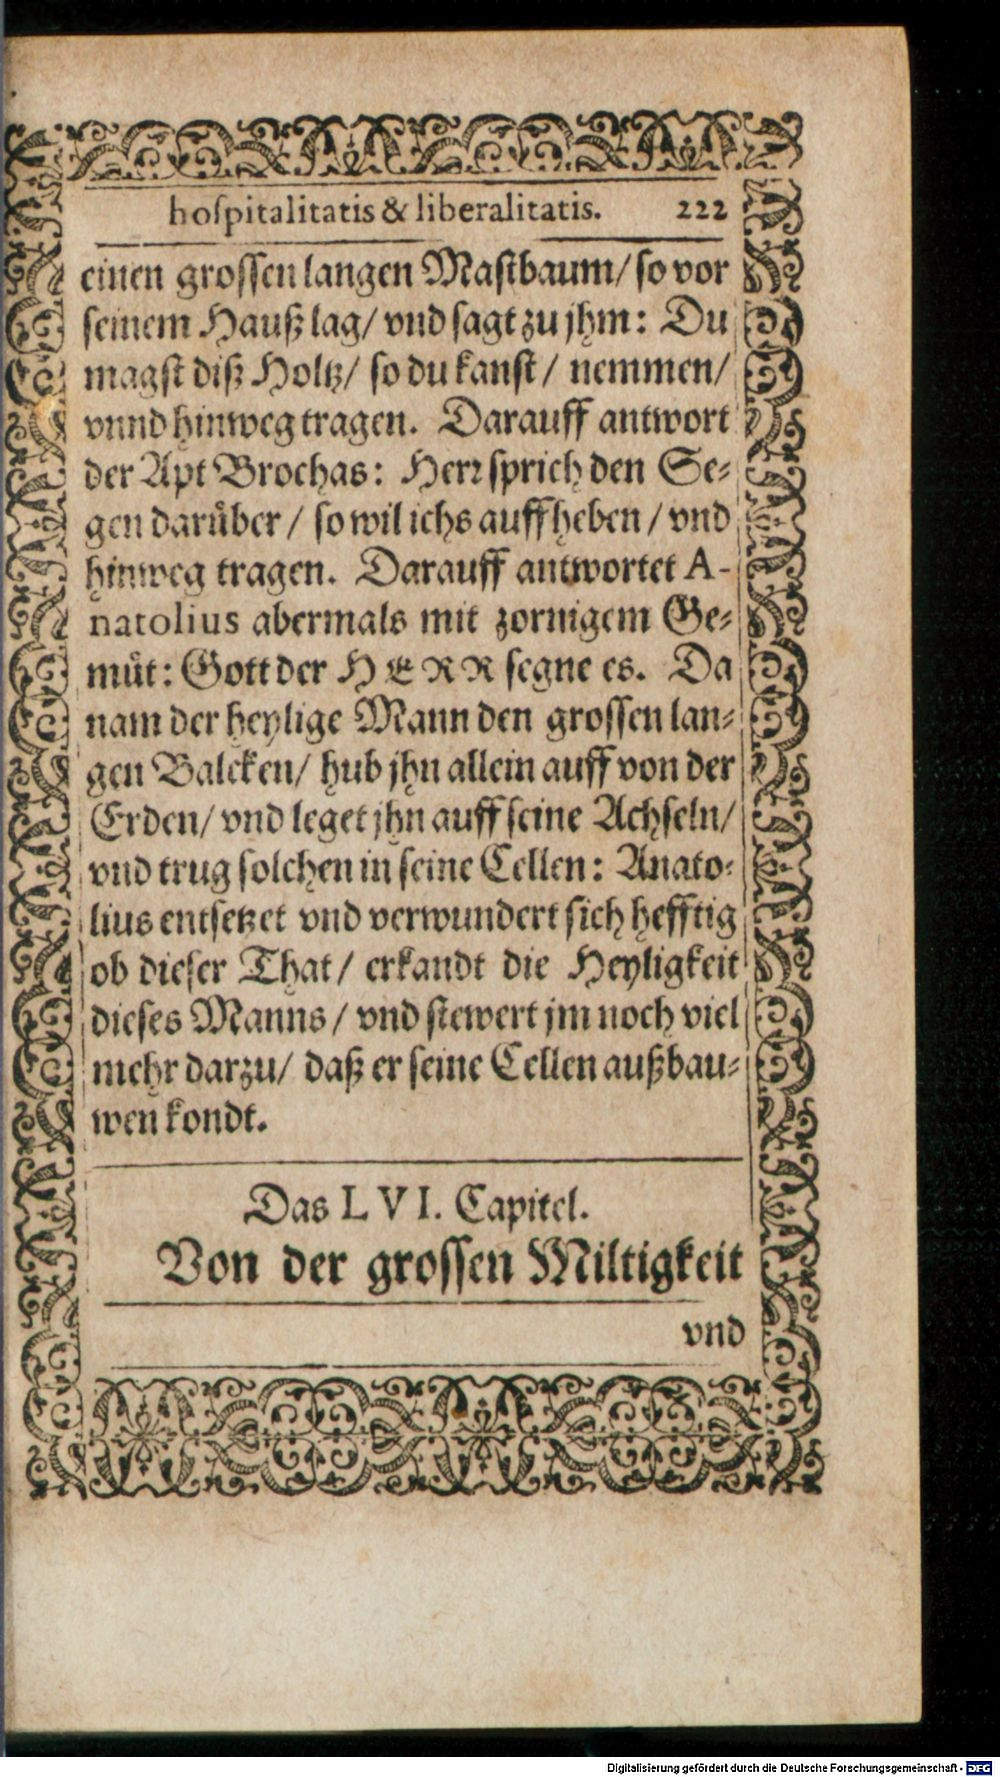 hoſpitalitatis & liberalitatis. 222
einen groſſen langen Maſtbaum/ ſo vor
ſeinem Hauß lag/ vnd ſagt zu jhm: Du
magſt diß Holtz/ ſo du kanſt/ nemmen/
vnnd hinweg tragen. Darauff antwort
der Apt Brochas: Herr ſprich den Se-
gen daruͤber/ ſo wil ichs auffheben/ vnd
hinweg tragen. Darauff antwortet A-
natolius abermals mit zornigem Ge-
muͤt: Gott der HERR ſegne es. Da
nam der heylige Mann den groſſen lan-
gen Balcken/ hub jhn allein auff von der
Erden/ vnd leget jhn auff ſeine Achſeln/
vnd trug ſolchen in ſeine Cellen: Anato-
lius entſetzet vnd verwundert ſich hefftig
ob dieſer That/ erkandt die Heyligkeit
dieſes Manns/ vnd ſtewert jm noch viel
mehr darzu/ daß er ſeine Cellen außbau-
wen kondt.
Das LVI. Capitel.
Von der groſſen Miltigkeit
vnd
Digitalisierung gefördert durch die Deutsche Forschungsgemeinschaft - DFG